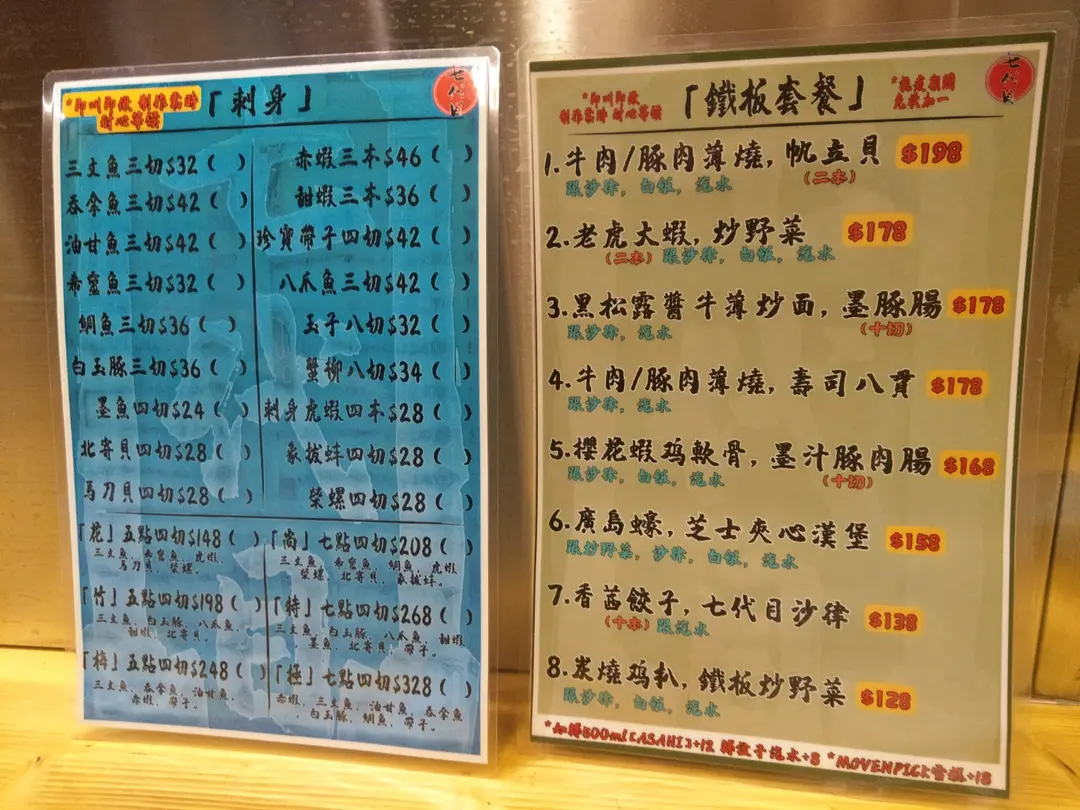 *即叫即做 製作需時
耐心等候
「刺身」
七代目
三文魚三切$32( )
吞拿魚三切$42( )
油甘魚三切$42( )
希靈魚三切$32( )
鯛魚三切$36( )
白玉豚三切$36( )
墨魚四切$24( )
北寄貝四切$28( )
馬刀貝四切$28( )
赤蝦三本$46( )
甜蝦三本$36( )
珍寶帶子四切$42( )
八爪魚三切$42( )
玉子八切$32( )
蟹柳八切$34( )
刺身虎蝦四本$28( )
象拔蚌四切$28( )
榮螺四切$28( )
「花」五點四切$148( )
三文魚,希靈魚,虎蝦,
馬刀貝,榮螺。
「竹」五點四切$198( )
三文魚,白玉豚,八爪魚,
甜蝦,北寄貝。
「梅」五點四切$248( )
三文魚,吞拿魚,油甘魚,
赤蝦,帶子。
「尚」七點四切$208( )
三文魚,希靈魚,鯛魚,虎蝦
榮螺,北寄貝,象拔蚌。
「特」七點四切$268( )
三文魚,白玉豚,八爪魚,甜蝦
,墨魚,北寄貝,帶子。
「極」七點四切$328( )
赤蝦,三文魚,油甘魚,吞拿魚
,白玉豚,鯛魚,帶子。
*即叫即做
製作需時 耐心等候
「鐵板套餐」
免收加一
七代目
1.牛肉/豚肉薄燒,帆立貝 $198
(二本)
跟沙律,白飯,汽水
2.老虎大蝦,炒野菜 $178
(二本)跟沙律,白飯,汽水
3.黑松露醬牛薄炒面,墨豚腸 $178
(十切)
跟沙律,汽水
4.牛肉/豚肉薄燒,壽司八貫 $178
跟沙律,汽水
5.櫻花蝦鸡軟骨,墨汁豚肉腸 $168
(十切)
跟沙律,白飯,汽水
6.廣島蠔,芝士夾心漢堡 $158
跟炒野菜,沙律,白飯,汽水
7.香茜餃子,七代目沙律 $138
(十本)跟汽水
8.炭燒鸡扒,鐵板炒野菜 $128
跟沙律,白飯,汽水
*如轉500ml(ASAHI)+12 轉波子汽水+8 *MOVENPICK雪糕+18